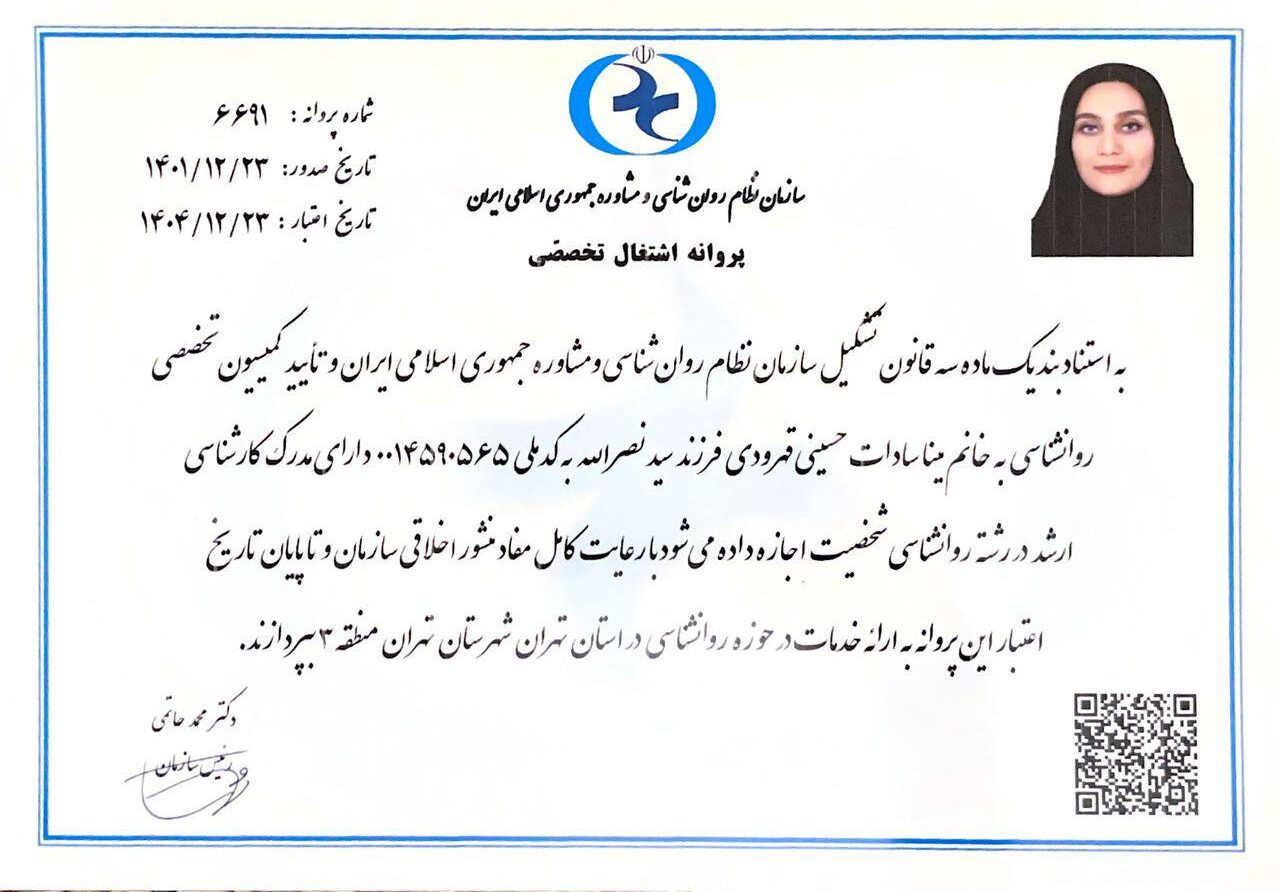 شماره پروانه : ۶۶۹۱
تاریخ صدور: ۱۴۰۱/۱۲/۲۳
تاریخ اعتبار : ۱۴۰۴/۱۲/۲۳
سازمان نظام روان شناسی و مشاوره جمهوری اسلامی ایران
پروانه اشتغال تخصصّی
به استناد بند یک ماده سه قانون تشکیل سازمان نظام روان شناسی و مشاوره جمهوری اسلامی ایران و تأیید کمیسیون تخصصی
روانشناسی به خانم مینا سادات حسینی قهرودی فرزند سید نصرالله به کد ملی ۰۰۱۴۵۹۰۵۶۵ دارای مدرک کارشناسی
ارشد در رشته روانشناسی شخصیت اجازه داده می شود با رعایت کامل مفاد منشور اخلاقی سازمان و تا پایان تاریخ
اعتبار این پروانه به ارائه خدمات در حوزه روانشناسی در استان تهران شهرستان تهران منطقه ۳ بپردازند.
دکتر محمد حاتمی
رئیس سازمان